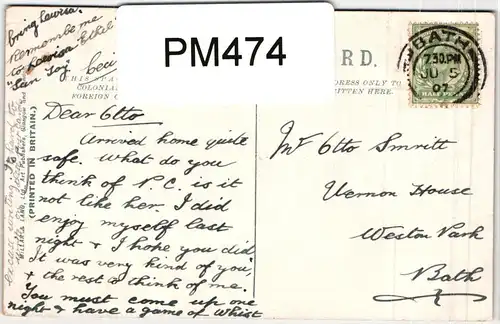 bring Lewisa.
Remember me
to Lewisa Ethel
"San Toy"
PM474
RD.
THIS SPA
COLONIA
FOREIGN
DRESS ONLY TO
RITTEN HERE.
BATH
7.30 PM
JU 5
07
HALFPENNY
(PRINTED IN BRITAIN.)
excuse writing
Dear Otto
Arrived home quite
safe. What do you
think of P.C. is it
not like her. I did
enjoy myself last
night & I hope you did
It was very kind of you,
& the rest to think of me.
You must come up one
night & have a game of Whist
Mr Otto Smritt
Vernon House
Weston Park
Bath